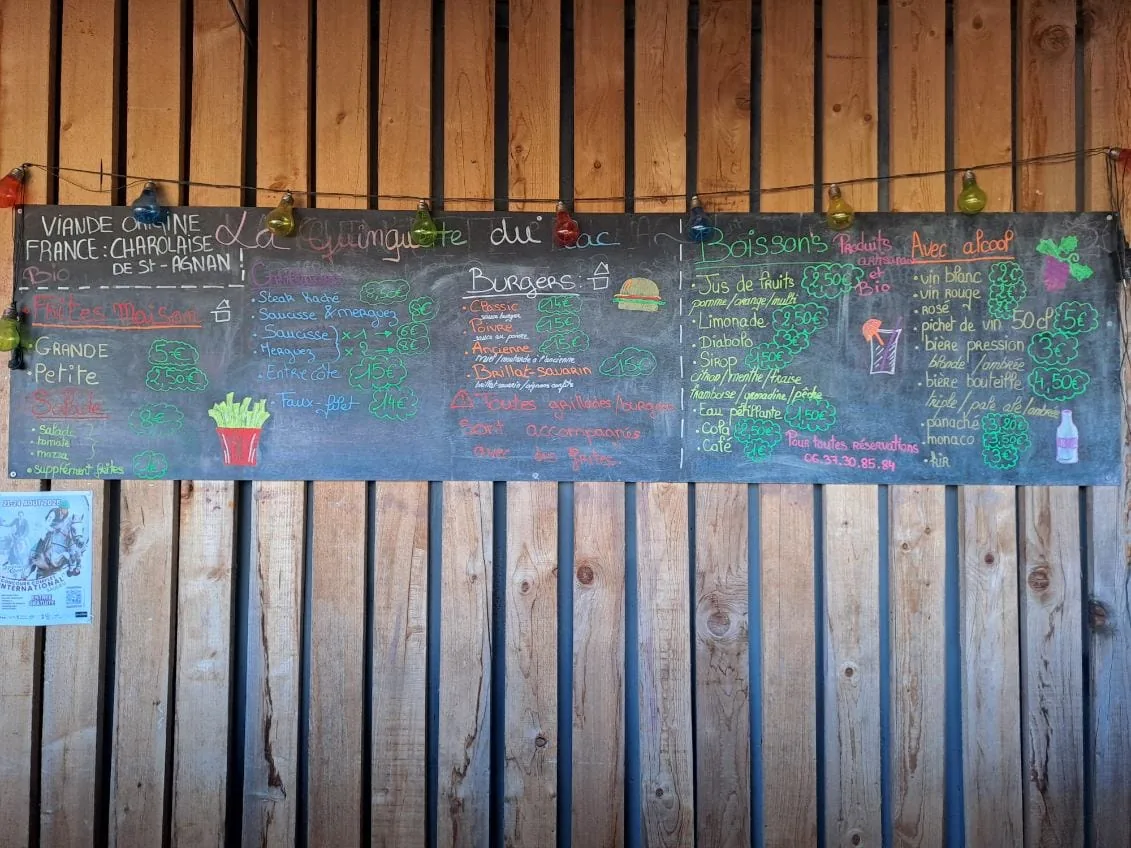 VIANDE ORIGINE
FRANCE: CHAROLAISE
DE St-AGNAN
BIO
La Guinguette du Lac
Frites Maison
GRANDE 5€
Petite
Salade 8€
salade
tomate
supplément frites
Steak haché 8,50€
Saucisse & merguez 8€
Saucisse x 1 → 6€
Merguez
Entrecôte 15€
Faux-filet 14€
BURGERS:
Classic 14€
sauce burger
Poivre 15€
sauce au poivre
Ancienne 15€
miel/moutarde à l'ancienne
Brillat-savarin
brillat-savarin/oignons confits
⚠ Toutes grillades/burgers
Sont accompagnés
avec des frites
Boissons
Produits
artisanaux
et
Bio
Jus de fruits 2,50€
pomme/orange/multi
Limonade 2,50€
Diabolo 3€
Sirop 1,50€
citron/menthe/fraise
framboise/grenadine/pêche
Eau pétillante 1,50€
Cola 2,50€
Café
Pour toutes réservations
06.37.30.85.84
Avec alcool
vin blanc
vin rouge
rosé
pichet de vin 50cl 5€
bière pression 3€
blonde/ambrée
bière bouteille 4,50€
triple/pale ale/ambrée
panaché
monaco
kir 3€
23-24 AOUT
INTERNATIONAL
ENTRÉE
GRATUITE